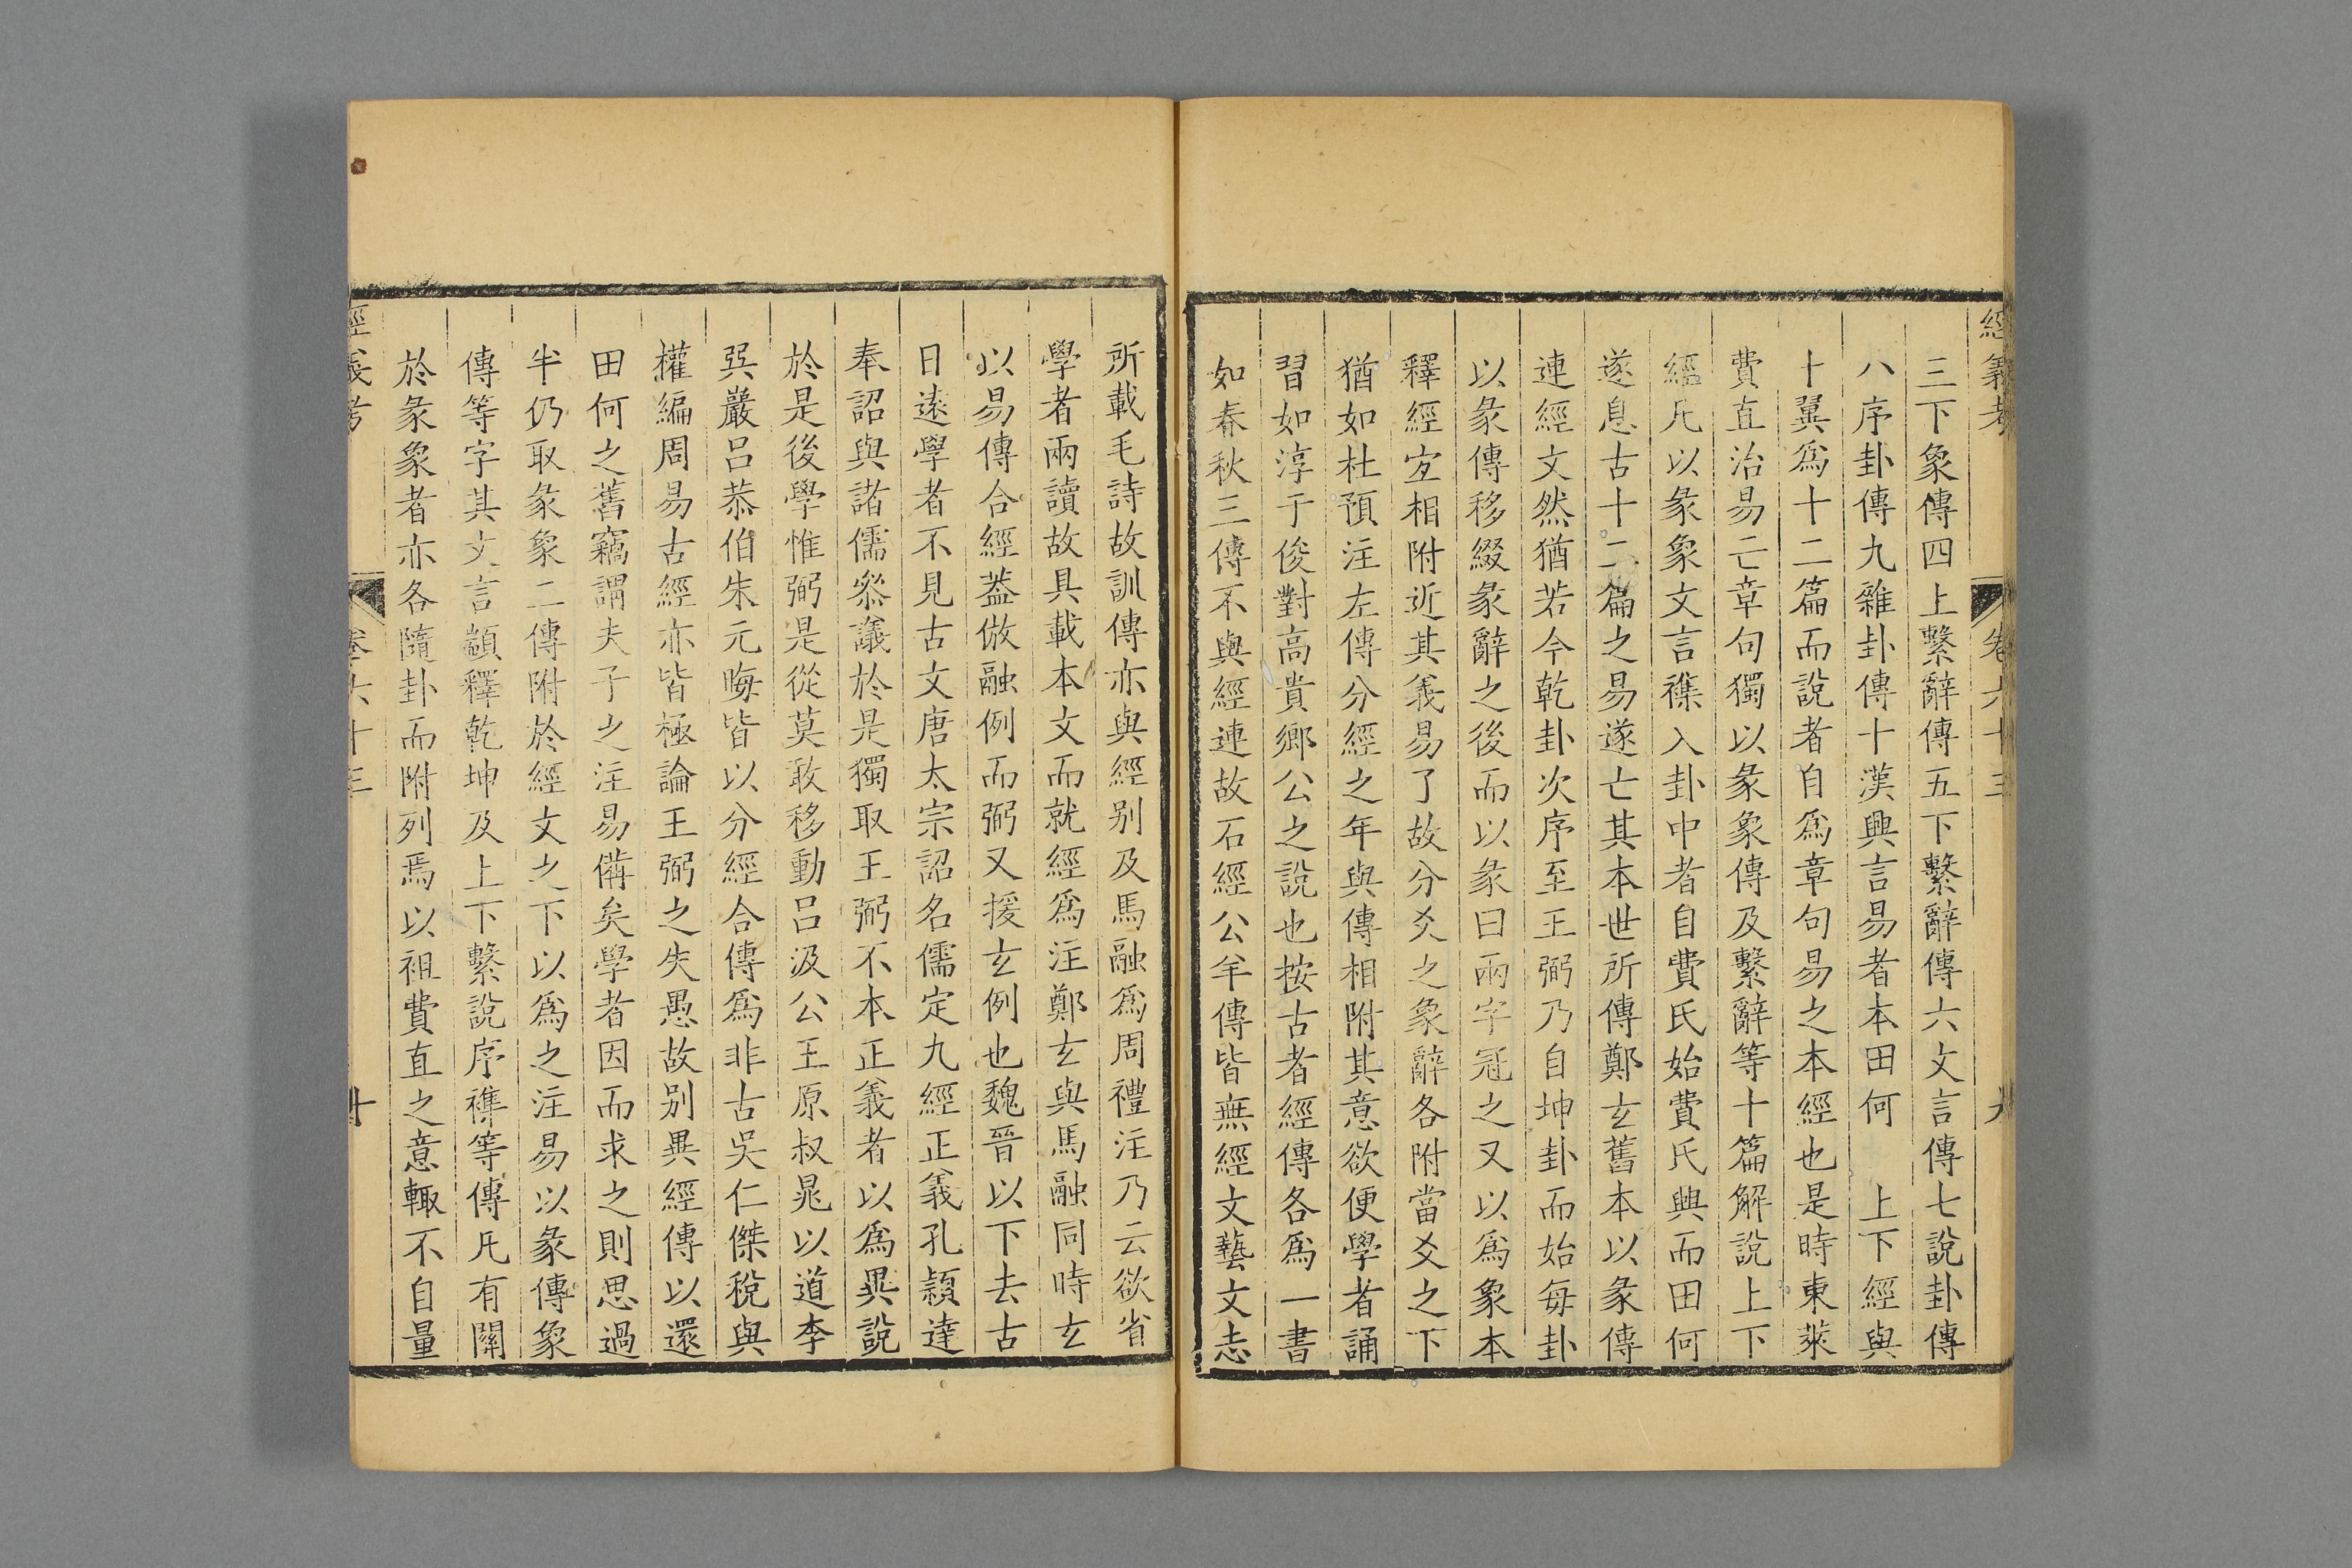 經義考 卷六十三 九
三下象傳四上繫辭傳五下繫辭傳六文言傳七說卦傳
八序卦傳九雜卦傳十漢興言易者本田何 上下經與
十翼爲十二篇而說者自爲章句易之本經也是時東萊
費直治易亡章句獨以彖象傳及繫辭等十篇解說上下
經凡以彖象文言襍入卦中者自費氏始費氏興而田何
遂息古十二篇之易遂亡其本世所傳鄭玄舊本以彖傳
連經文然猶若今乾卦次序至王弼乃自坤卦而始每卦
以彖傳移綴彖辭之後而以彖曰兩字冠之又以爲象本
釋經宐相附近其義易了故分爻之象辭各附當爻之下
猶如杜預注左傳分經之年與傳相附其意欲便學者誦
習如淳于俊對高貴鄉公之說也按古者經傳各爲一書
如春秋三傳不與經連故石經公羊傳皆無經文藝文志
所載毛詩故訓傳亦與經别及馬融爲周禮注乃云欲省
學者兩讀故具載本文而就經爲注鄭玄與馬融同時玄
以易傳合經葢倣融例而弼又援玄例也魏晉以下去古
日遠學者不見古文唐太宗詔名儒定九經正義孔穎達
奉詔與諸儒叅議於是獨取王弼不本正義者以爲異說
於是後學惟弼是從莫敢移動呂汲公王原叔晁以道李
巽巖呂恭伯朱元晦皆以分經合傳爲非古吳仁傑稅與
權編周易古經亦皆極論王弼之失愚故别異經傳以還
田何之舊竊謂夫子之注易備矣學者因而求之則思過
半仍取彖象二傳附於經文之下以爲之注易以彖傳象
傳等字其文言顓釋乾坤及上下繫說序襍等傳凡有關
於彖象者亦各隨卦而附列焉以祖費直之意輙不自量
經義考 卷六十三 十